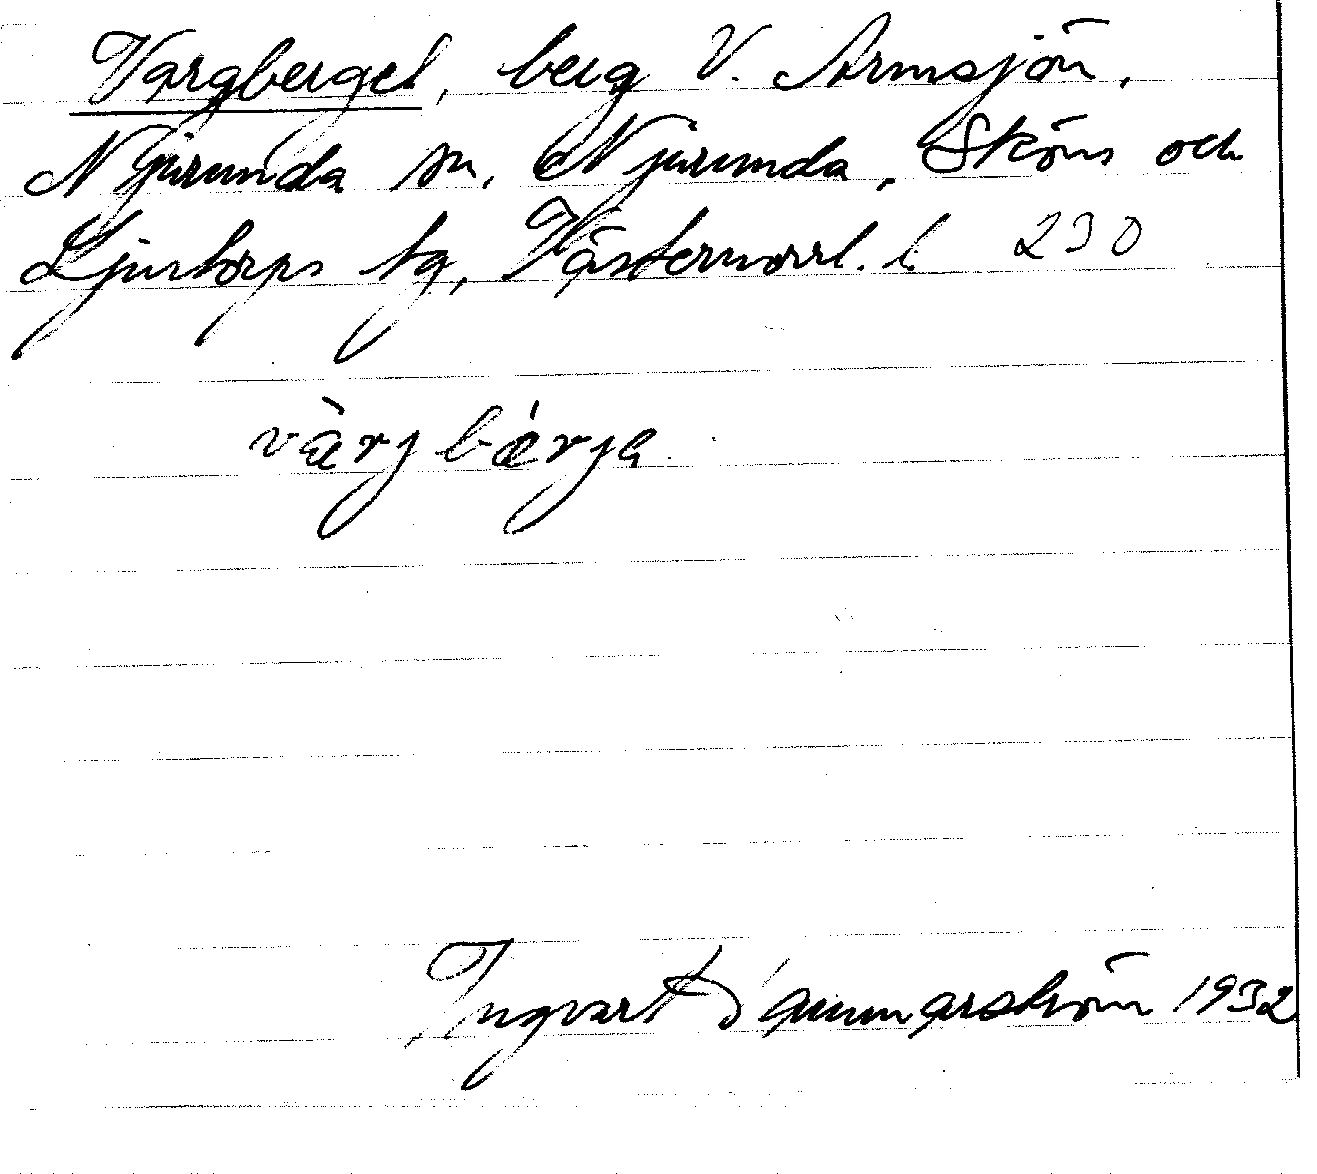 Vargberget, berg V. Armsjön,
Njurunda sn, Njurunda, Sköns och
Ljustorps tg, Västernorrl. l. 230
värjbärja
Ingvart Dammarström 1932